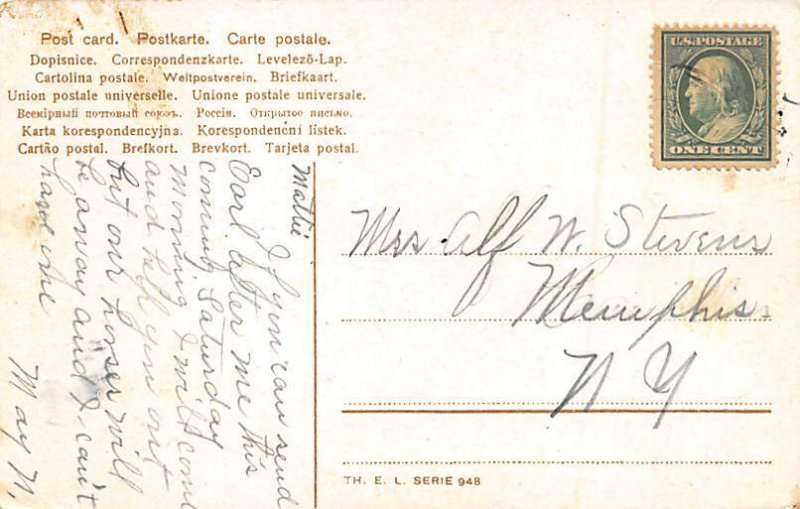 Post card. Postkarte. Carte postale.
Dopisnice. Correspondenzkarte. Levelezö-Lap.
Cartolina postale. Weltpostverein. Briefkaart.
Union postale universelle. Unione postale universale.
Всемірный почтовый союзъ. Россія. Открытое письмо.
Karta korespondencyjna. Korespondenční lístek.
Cartão postal. Brefkort. Brevkort. Tarjeta postal.
U.S. POSTAGE
ONE CENT
Mattie
If you can send
Earl after me this
coming Saturday
Morning I will come
and help you out
but our horses will
be away and I can't
have one
May N.
Mrs Alf W. Stevens
Memphis
N Y
TH. E. L. SERIE 948